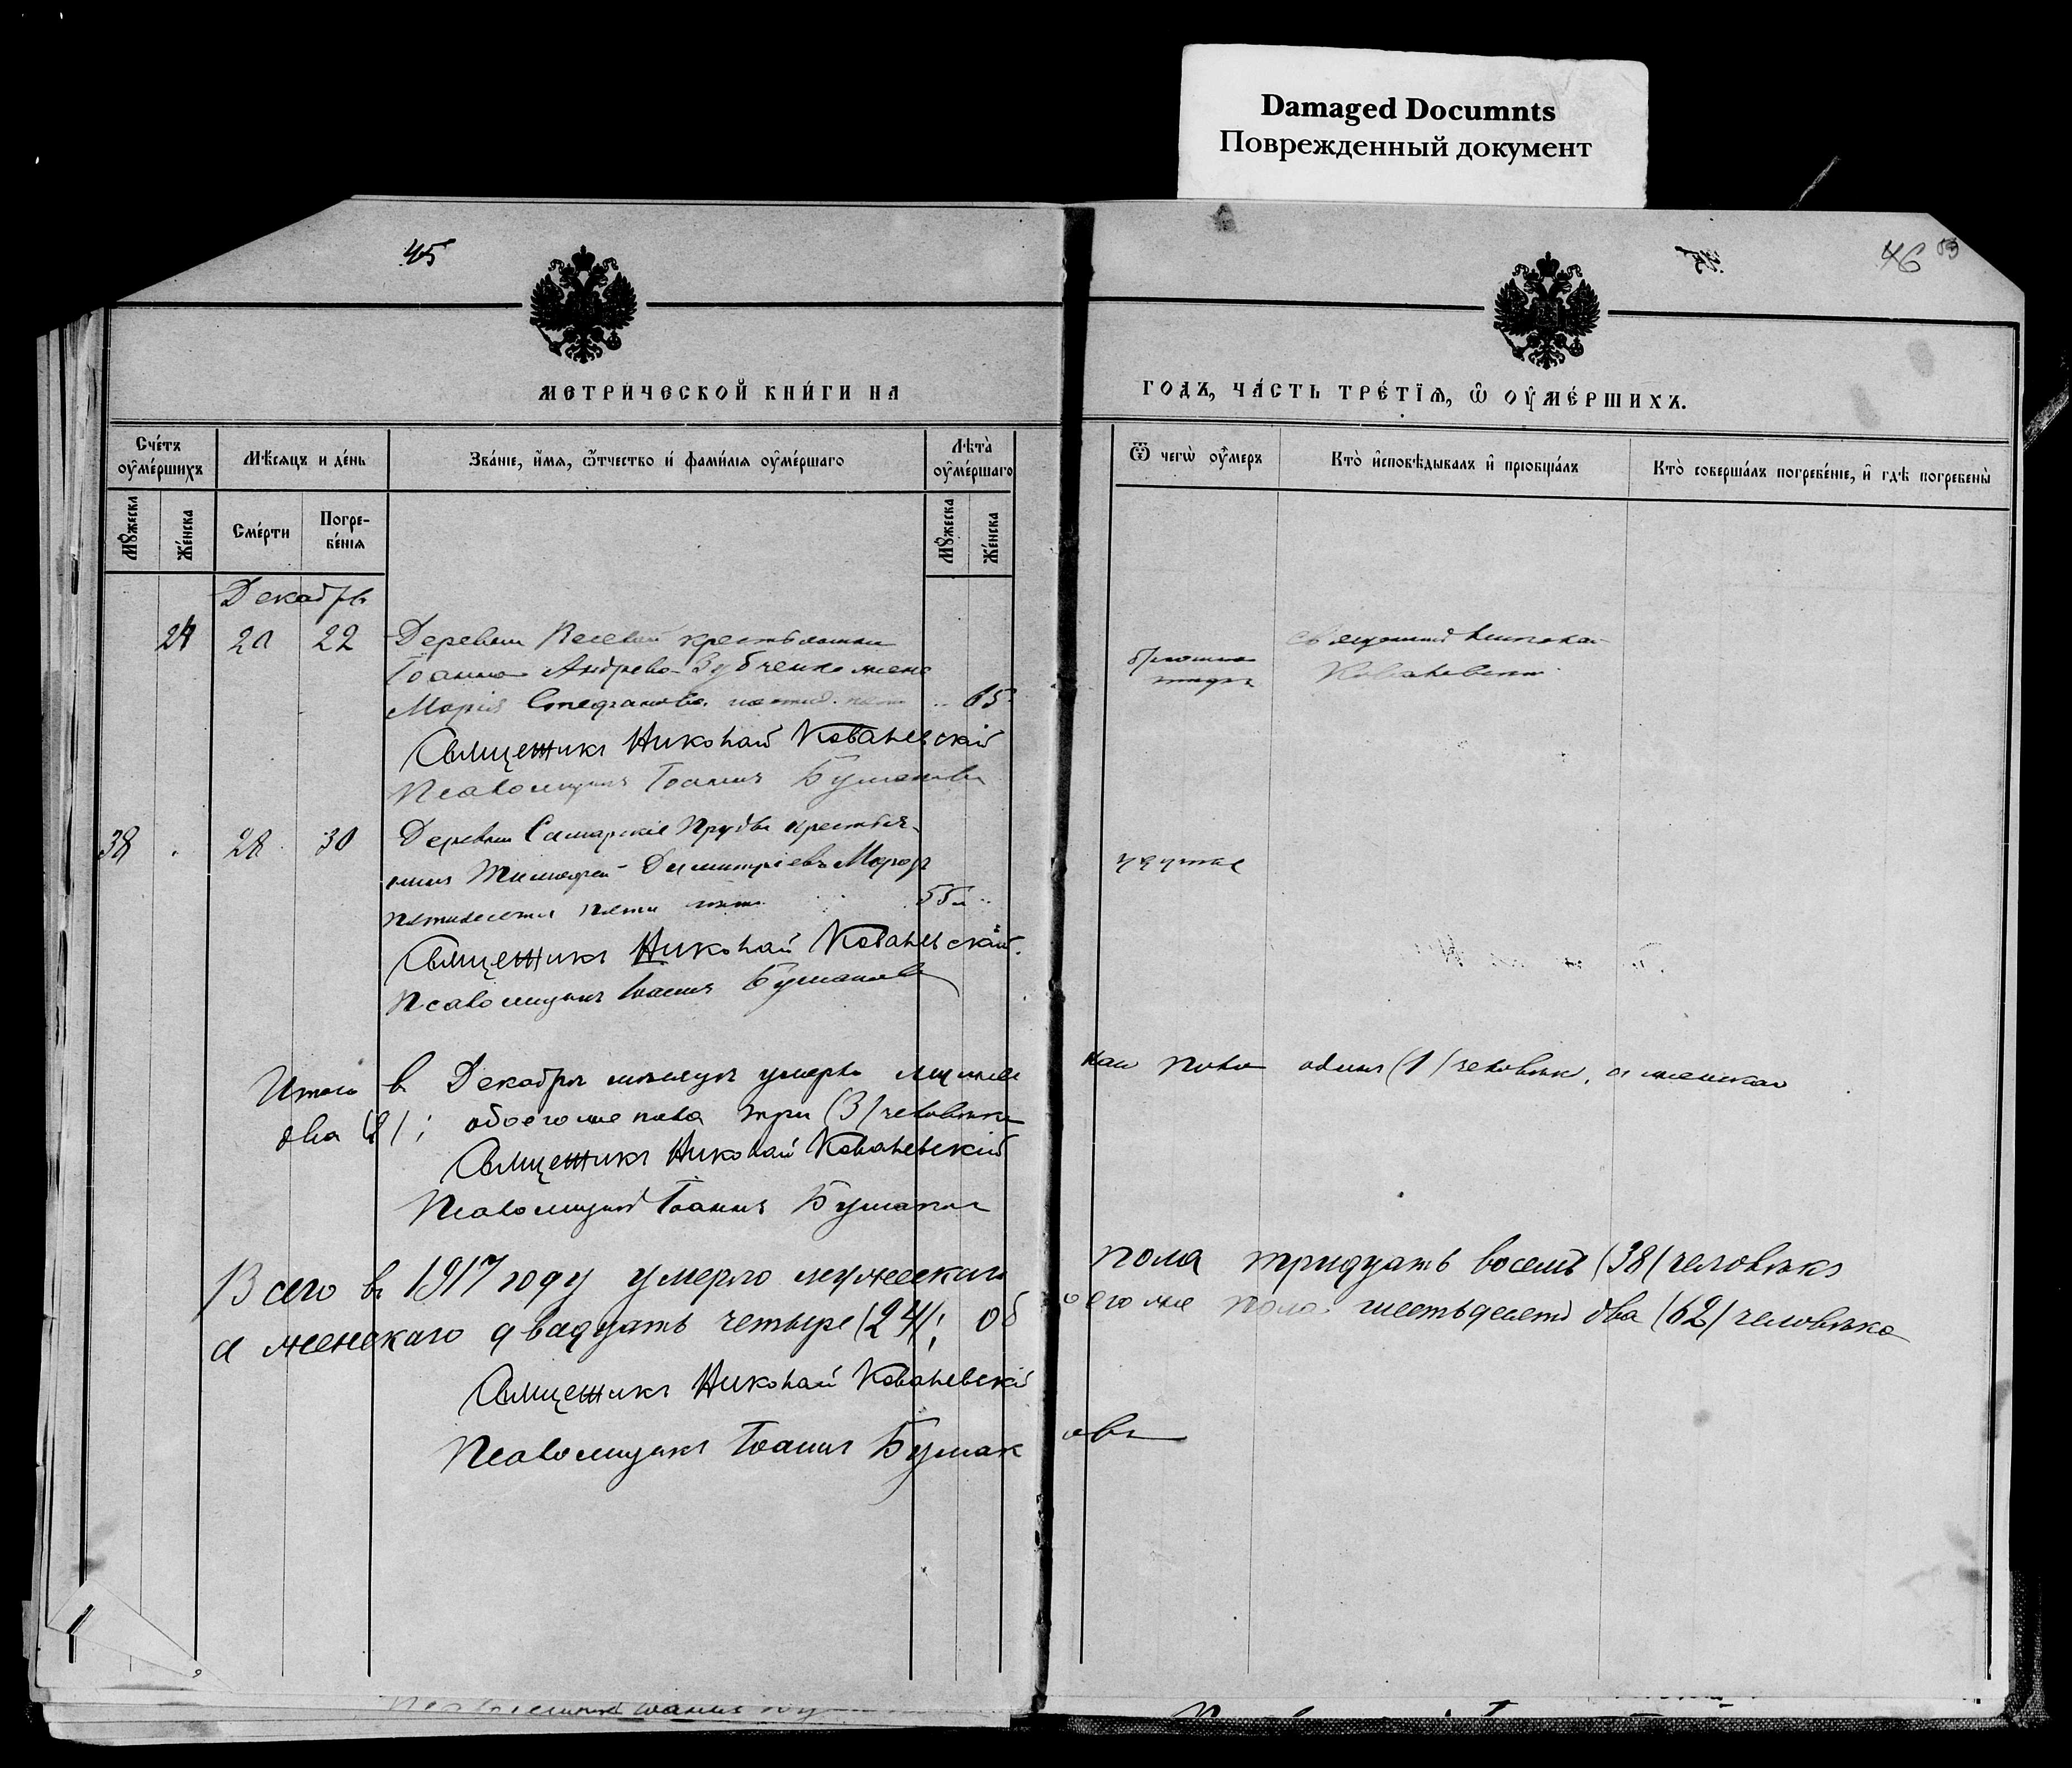 Damaged Documnts
Поврежденный документ
45
46
МЕТРИЧЕСКОЙ КНИ́ГИ НА
ГОДЪ, ЧА́СТЬ ТРЕ́ТЇѦ, Ѡ҆ ОУ҆МЕ́РШИХЪ.
Сче́тъ оу҆ме́ршихъ
Мѣ́сѧцъ и де́нь
Зва́нїе, и҆́мѧ, ѻ҆́тчество и҆ фами́лїѧ оу҆ме́ршаго
Лѣ́та оу҆ме́ршаго
Ѿ чегѡ̀ оу҆́меръ
Кто̀ и҆сповѣ́дывалъ и҆ прїобща́лъ
Кто̀ соверша́лъ погребе́нїе, и҆ гдѣ̀ погребены̀
Мꙋ́жеска
Же́нска
Сме́рти
Погре-
бе́нїѧ
Мꙋ́жеска
Же́нска
Декабрь
24 20 22 Деревни крестьянина
Іоанна Андреева Зубченко жена
Марія Стефанова 65
священник
Ковалевский
Священникъ Николай Ковалевскій
Псаломщикъ Іоаннъ Бумаковъ
38 28 30 Деревни Самарскіе Пруды крестья-
нинъ Тимофей Димитріевъ Мороз
пятидесяти пяти лѣтъ 55
Священникъ Николай Ковалевскій.
Псаломщикъ Іоаннъ Бумаковъ
Итого въ Декабрѣ мѣсяцѣ умерло мужес
каго пола одинъ (1) человѣк, а женскаго
два (2); обоего же пола три (3) человѣка
Священникъ Николай Ковалевскій
Псаломщикъ Іоаннъ Бумаковъ
Всего въ 1917 году умерло мужескаго пола тридцать восемь (38) человѣкъ
а женскаго двадцать четыре (24); обоего же пола шестьдесятъ два (62) человѣка
Священникъ Николай Ковалевскій
Псаломщикъ Іоаннъ Бумаковъ